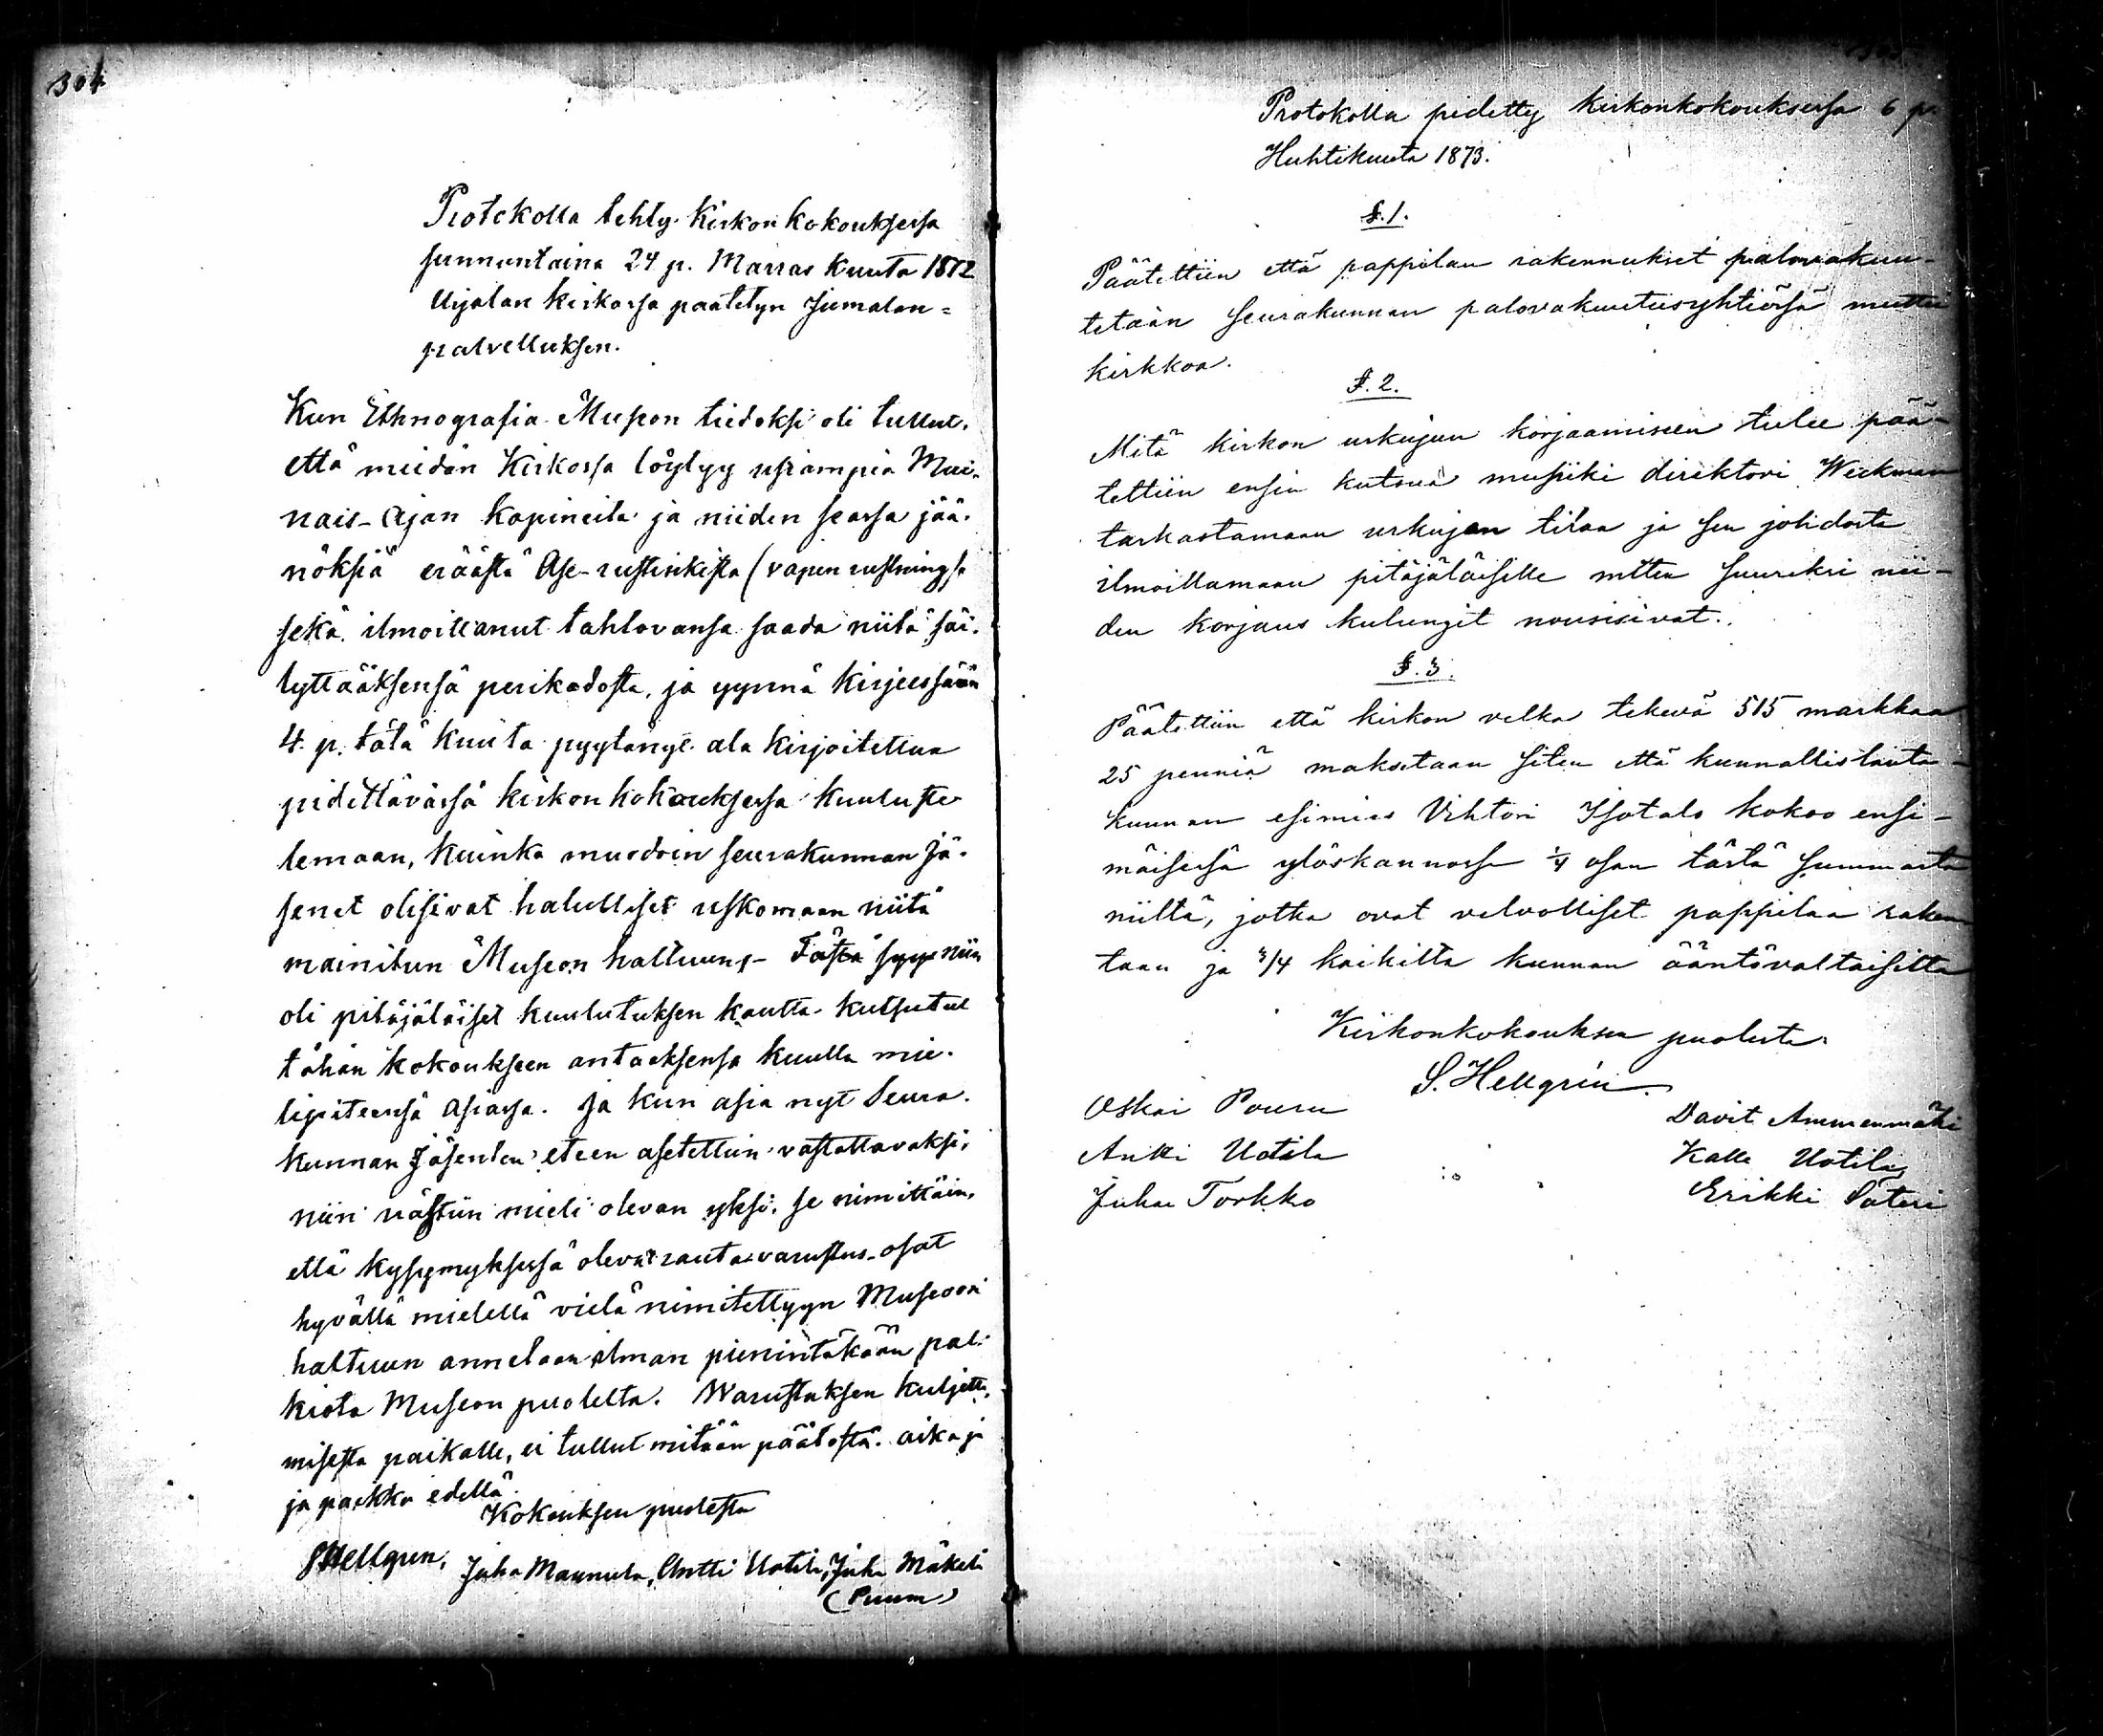 304
Protokolla tehty Kirkon kokouksessa
sunnuntaina 24 p. Marras Kuuta 1872
Urjalan kirkossa päätetyn Jumalan=
palvelluksen.
Kun Ethnografia Museon tiedoksi oli tullut,
että meidän Kirkossa löytyy usiampia Mui-
nais-Ajan kapineita ja niiden seassa jää-
nöksiä eräästä Ase-rustinkista (vapen rustning)
sekä ilmoittanut tahtovansa saada niitä säi-
lyttääksensä perikadosta, ja yynnä kirjeessään
4. p. tätä kuuta pyytänyt ala kirjoitettua
pidettävässä kirkon kokouksessa kuuluste
lemaan, kuinka muodoin seurakunnan jä-
senet olisivat halulliset uskomaan niitä
mainitun Museon haltuun,- Tästä syys niin
oli pitäjäläiset kuulutuksen kautta kutsutut
tähän kokoukseen antaaksensa kuulla mie-
lipiteensä asiassa. ja kun asia nyt Seura-
kunnan Jäsenten eteen asetettiin vastattavaksi,
niin nästiin mieli olevan yksi, se nimittäin,
että kysymyksessä olevat rauta-varustus-osat
hyvällä mielellä vielä nimitettyyn Museoon
haltuun annetaan ilman pienintäkään pal-
kiota Museon puolelta. Warustuksen kuljetta-
misesta paikalle, ei tullut mitään päätöstä. aika ja
ja paikka edellä.
Kokouksen puolesta
SHellgren, Juha Maunula, Antti Uotila, Juha Mäkelä
(Puum)
Protokolla pidetty kirkonkokouksessa 6 p.
Huhtikuuta 1873.
§. 1.
Päätettiin että pappilan rakennukset palovakuu-
tetaan seurakunnan palovakuutusyhtiössä mutta
kirkkoa.
§. 2.
Mitä kirkon urkujen korjaamiseen tulee pää-
tettiin ensin kutsua musiiki direktori Weckman
tarkastamaan urkujen tilaa ja sen johdosta
ilmoittamaan pitäjäläisille mitten suureksi nii-
den korjaus kulungit nousisivat.
§. 3.
Päätettiin että kirkon velka tekevä 515 markkaa
25 penniä maksetaan siten että kunnallislauta-
kunnan esimies Vihtori Isotalo kokoo ensi-
mäisessä ylöskannossa 1/4 osan tästä summasta
niiltä, jotka ovat velvolliset pappilaa raken
taan ja 3/4 kaikilta kunnan ääntövaltaisilta
Kirkonkokouksen puolesta
S. Hellgren.
Oskar Pouru
Davit Ammenmäki
Antti Uotila
Kalle Uotila
Juha Torkko
Erikki Säteri